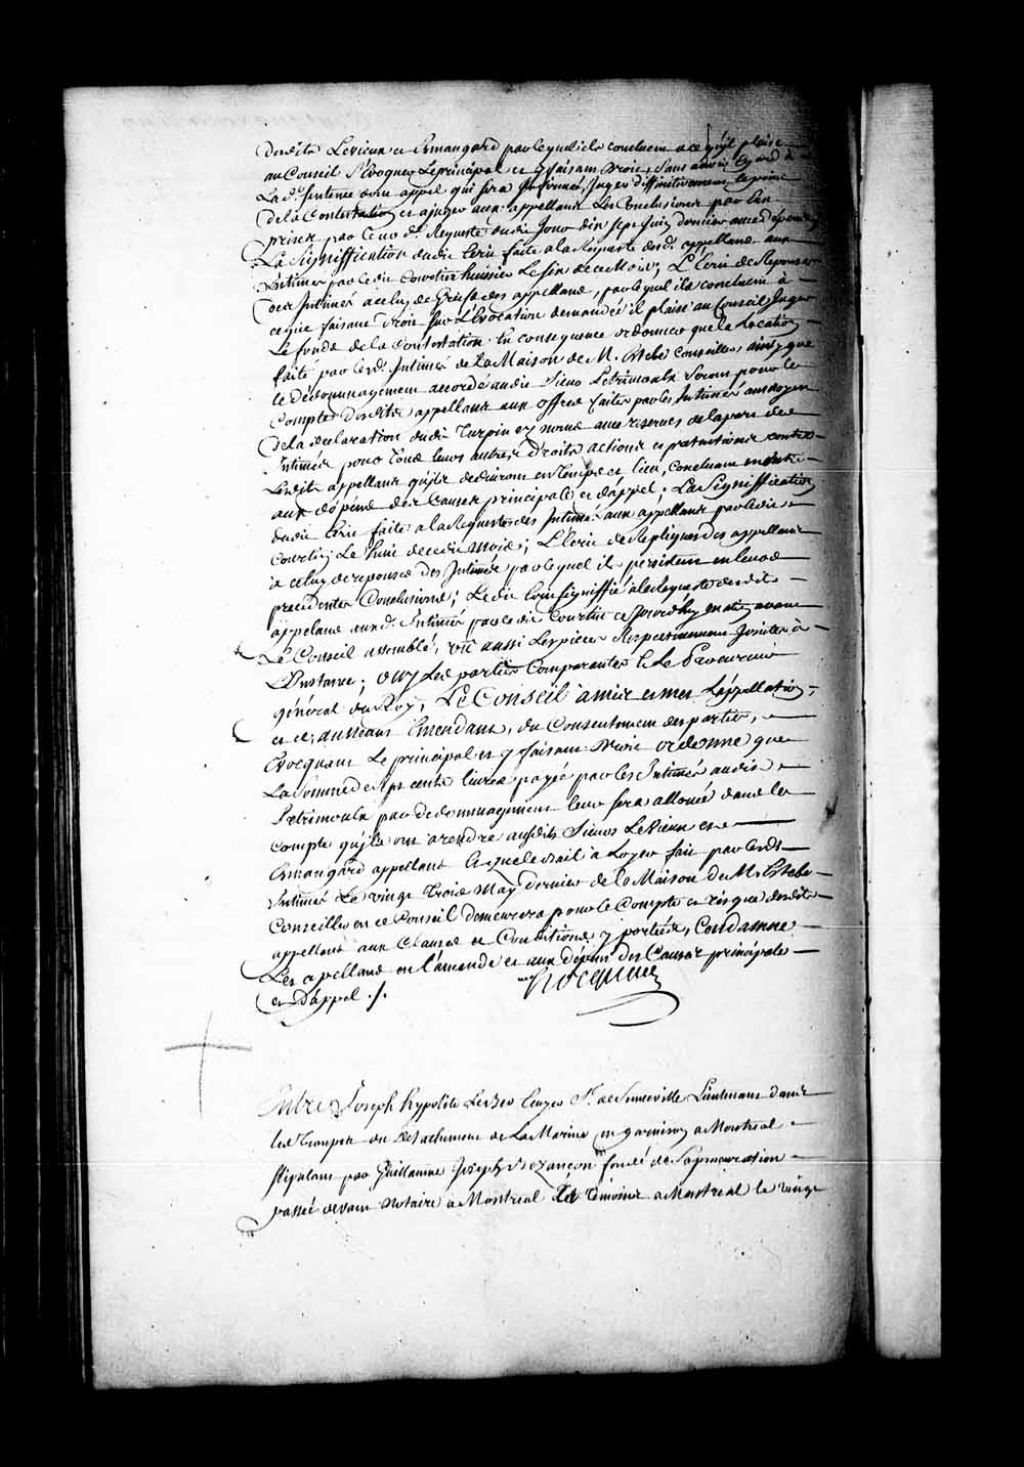 desdits Levieux et Ermangard par lequel ils concluent a ce qu'il plaise
au Conseil Evoquer Le principal et y faisant Droit, Sans avoir egard à
La d.e Sentence dont appel qui sera Infirmée, Juger diffinitivement le fond
de la Contestation et ajuger aux appellans Les Conclusions par Eux
prises par leur d.e Requeste dudit Jour dix sept Juin dernier avec dépens
La Signiffication dudit Ecrit faite a la Requeste desd. appellans aux
Intimés par ledit Courtin huissier Le six de ce Mois; L'Ecrit de Reponses
des Intimés a celuy de Griefs des appellans, par lequel ils concluent à
ce que faisant droit sur L'Evocation demandée il plaise au Conseil Juger
Le fonds de la Contestation En consequence ordonner que la Location
faite par lesd. Intimés de La Maison de M. Estebe Conseiller, ainsy que
le dédommagement accordé audit Sieur Petrimoulx Seront pour le
Compte desdits appellans aux offres faites par les Intimés au moyen
de la declaration dudit Turpin et sous reserves de la part des
Intimés pour Tous leurs autres droits actions et pretentions contre
Lesdits appellans qu'ils deduiront en temps et lieu, Concluant en outre
aux dépens des Causes principale et d'appel; La Signiffication
dudit Ecrit faite a la Requeste des Intimés aux appellans par ledit
Courtin Le huit de cedit Mois; L'Ecrit de Repliques des appellans
a celuy de reponses des Intimés par lequel ils persistent en leurs
precedentes Conclusions; Ledit Ecrit signiffié a la Requeste desdits
appelans auxd. Intimés par ledit Courtin ce Jourd'huy matin avant
Le Conseil assemblé, vû aussi Les pieces Respectivement Jointes à
L'Instance; ouy Les parties Comparantes Et Le Procureur
général du Roy, Le Conseil a mis et met L'appellation,
et ce, au Neant Emendant, du Consentement des parties,
Evoquant Le principal et y faisant Droit ordonne que
La Somme de sept cents livres payée par les Intimés audit
Petrimoulx par dedommagement leur sera allouée dans les
compte qu'ils ont a rendre ausdits Sieurs Levieux et
Ermangard appellans Et que le bail a Loyer fait par lesds
Intimés Le vingt trois May dernier de la Maison du M. Estebe
Conseiller en ce Conseil demeurera pour le Compte et risque desdits
appellans aux Clauses et Conditions y portées, Condamne
Les apellans en l'amende et aux dépens des Causes principale
et D'appel ./.
Hocquart
Entre Joseph hypolite Leber Ecuyer S.r de Senneville Lieutenant dans
les Troupes du Detachement de La Marine en garnison a Montreal
stipulant par Guillaume Joseph Besançon fondé de Sa procuration
passée devant Notaire a Montreal Et témoins a Montreal le vingt